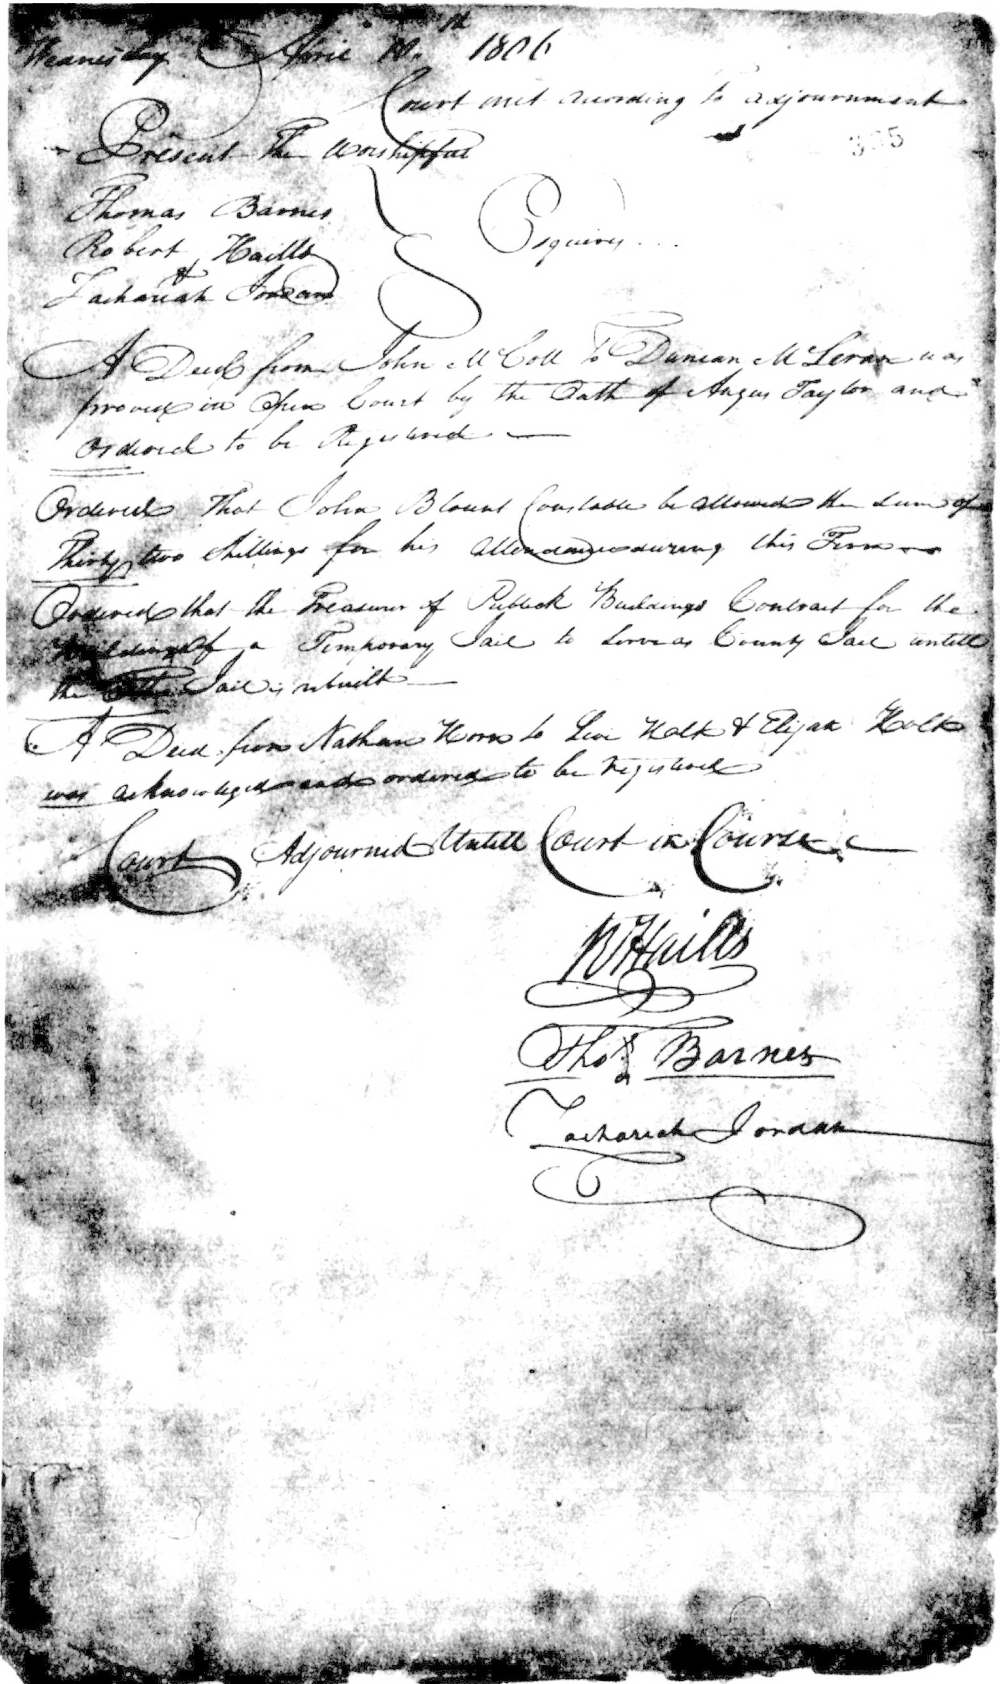 Wednesday April th 1806
Court met according to adjournment
Present The Worshipful
Thomas Barnes
Robert Hailes Esquires
&
Zachariah Jordan
A Deed from John McColl to Duncan McLeran was
proved in Open Court by the Oath of Angus Taylor and
Ordered to be Registered
Ordered That John Blount Constable be allowed the Sum of
Thirty two Shillings for his attendance during this Term
Ordered that the Treasurer of Publick Buildings Contract for the
building of a Temporary Jail to Serve as County Jail untill
the Jail is rebuilt
A Deed from Nathan Horn to Levi Holt & Elijah Holt
was acknowleged and ordered to be registered
Court Adjourned Untill Court in Course
Hailes
Thos Barnes
Zachariah Jordan